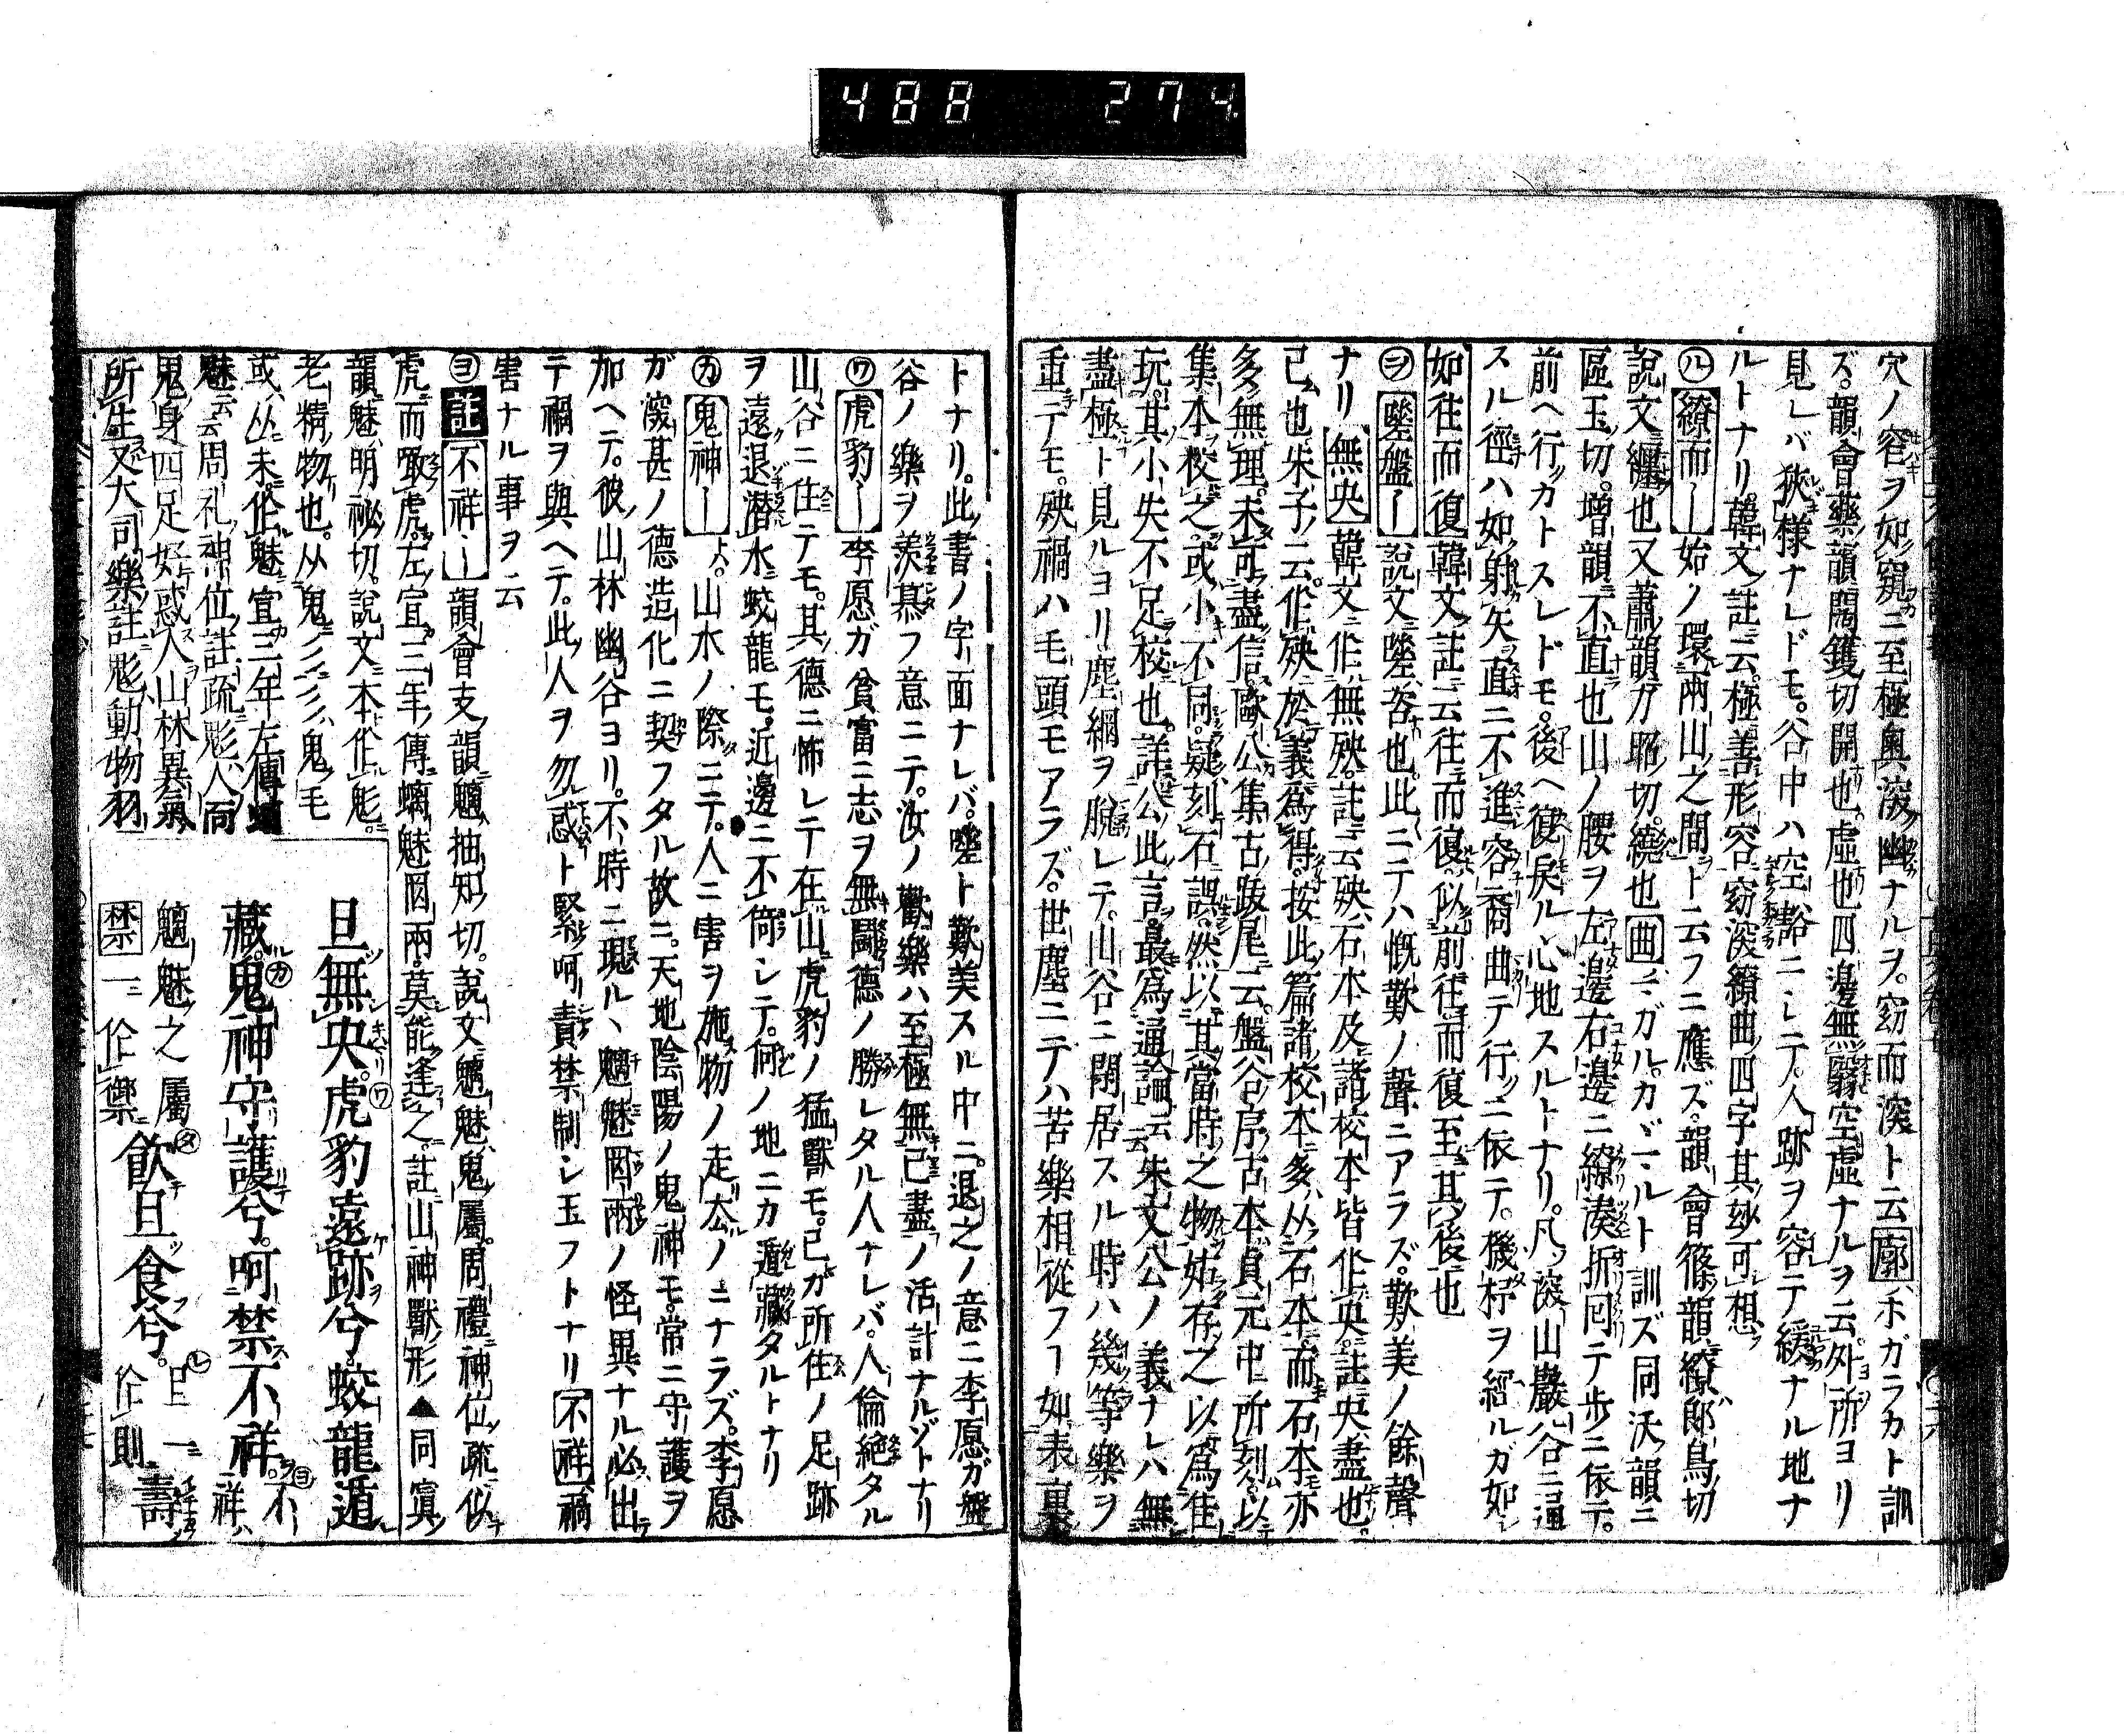 488 274
穴ノ容ヲ如窺ニ至極奥深幽ナルヲ。窈而深ト云廓ホガラカト訓
ズ。韻會藥韻闊鑊切開也。虚也四邊無翳空虚ナルヲ云。外所ヨリ
見レバ狹様ナレドモ。谷中ハ空豁ニシテ。人跡ヲ容テ緩ナル地ナ
ルトナリ。韓文註云極善形容窈深繚曲四字其妙可想
㋸繚而ー始ノ環兩山之間ト云フニ應ズ。韻會篠韻繚郎鳥切
說文纏也又蕭韻力昭切。繞也曲ニガル。カヾルト訓ズ同沃韻ニ
區玉切。增韻不直也山ノ腰ヲ左邊右邊ニ繚湊折囘テ歩ニ依テ。
前ヘ行カトスレドモ。後ヘ復戻ル心地スルトナリ。凡深山嚴谷ニ通
スル徑ハ如射矢直ニ不進容裔曲テ行ニ依テ。機杼ヲ經ルガ如
如往而復韓文註云往而復。似前往而復至其後也
㋾嗟盤ー說文嗟咨也。此ニテハ慨歎ノ聲ニアラズ。歎美ノ餘聲
ナリ無央韓文作無殃。註云殃石本及諸校本皆作央。註央盡也。
已也朱子云。作殃於義爲得。按此篇諸校本多从石本而石本亦
多無理。未可盡信歐公集古跋尾云。盤谷序古本貞元中所刻。以
集本校之。或小不同。疑刻石誤。然以其當時之物姑存之以爲佳
玩。其小失不足校也。詳公此言。最爲通論云朱文公ノ義ナレハ無
盡極ト見ルヨリ塵網ヲ脫レテ。山谷ニ閑居スル時ハ幾等樂ヲ
重テモ。殃禍ハ毛頭モアラズ。世塵ニテハ苦樂相從フー如表裏
トナリ。此書ノ字面ナレバ。嗟ト歎美スル中ニ。退之ノ意ニ李愿ガ盤
谷ノ樂ヲ羨慕フ意ニテ。汝ノ歡樂ハ至極無已盡ノ活計ナルゾトナリ
㋻虎豹ー李愿ガ貧富ニ志ヲ無鬪德ノ勝レタル人ナレバ。人倫絶タル
山谷ニ住テモ。其德ニ怖レテ在山虎豹ノ猛獸モ。己ガ所住ノ足跡
ヲ遠退潜水蛟龍モ。近邊ニ不倚シテ。何ノ地ニカ遁藏タルトナリ
㋕鬼神ー山水ノ際ニテ。人ニ害ヲ施物ノ走去ノミナラズ。李愿
ガ深甚ノ德造化ニ契フタル故ニ。天地陰陽ノ鬼神モ。常ニ守護ヲ
加ヘテ。彼山林幽谷ヨリ。不時ニ現ル、魑魅罔兩ノ怪異ナル必出
テ禍ヲ與ヘテ。此人ヲ勿惑ト緊呵責禁制シ玉フトナリ不祥禍
害ナル事ヲ云
㋵註不祥ー韻會支韻魑抽知切。說文魑魅鬼屬。周禮神位疏似
虎而噉虎。左宣三年傳螭魅罔兩。莫能逢之註山神獸形▲同寘
韻魅明祕切。說文本作鬽。
老精物也。从鬼彡彡鬼毛
或从未作魅宣三年左傳螭
魅云周礼神位註疏鬽人面
鬼身四足好惑人山林異氣
所生又大司樂註鬽動物羽
且無央。虎豹遠跡兮。蛟龍遁
藏。鬼神守護兮。呵禁不祥。不祥ハ
魑魅之屬
禁一作禦飮且食兮。且一作則壽